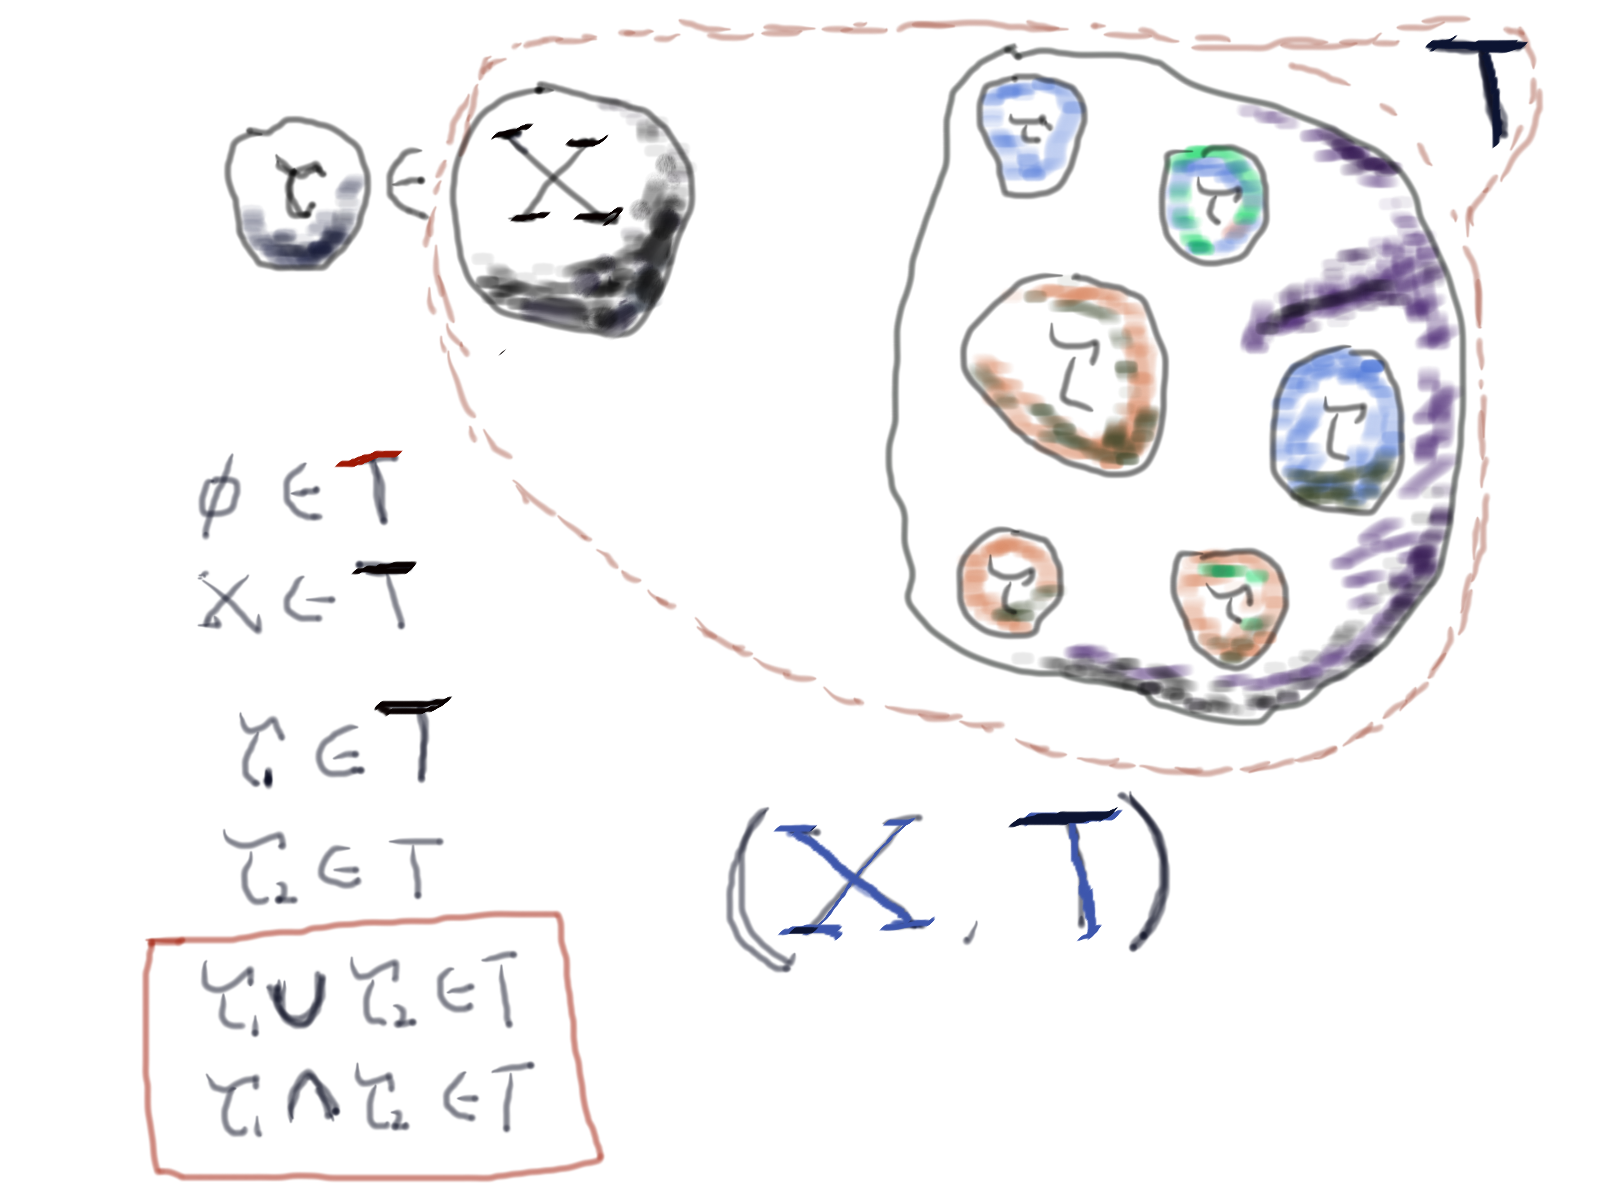 τ ∈ X
T
τ
τ
τ
τ
τ
τ
ϕ ∈ T
X ∈ T
τ₁ ∈ T
τ₂ ∈ T
(X, T)
τ₁ ∪ τ₂ ∈ T
τ₁ ∩ τ₂ ∈ T